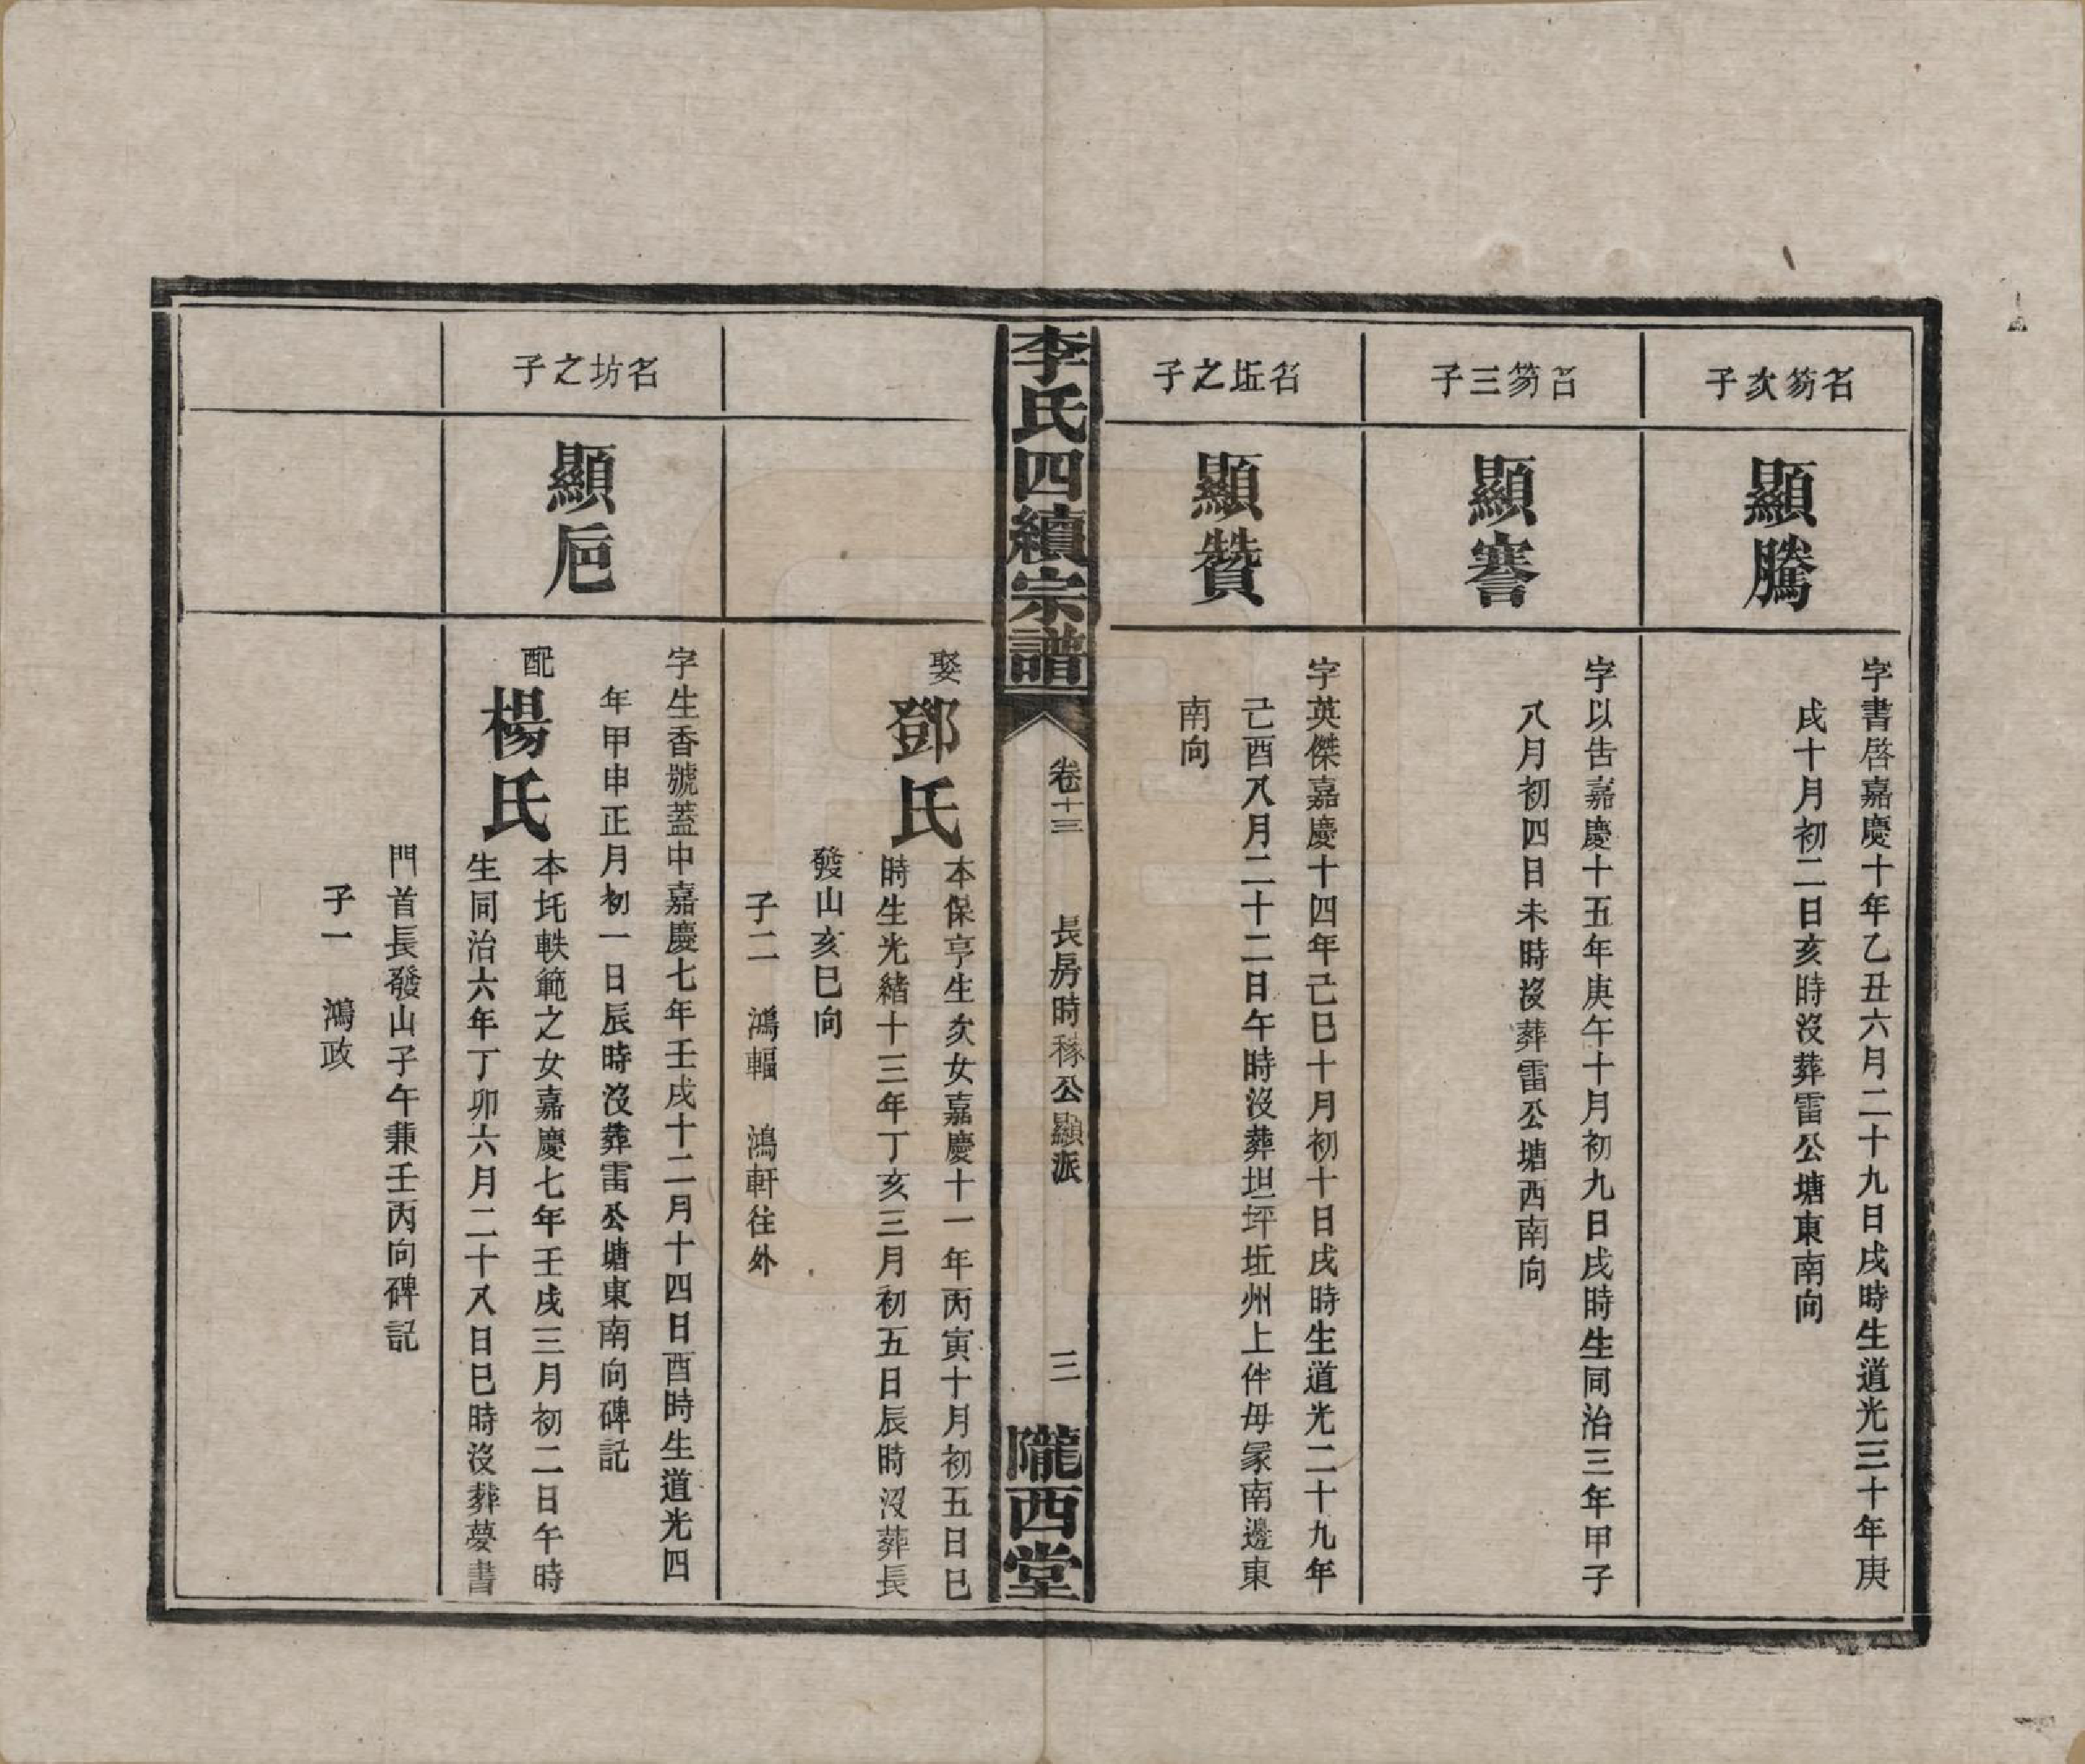 名芴次子
顯騰
字書啓嘉慶十年乙丑六月二十九日戌時生道光三十年庚
戌十月初二日亥時沒葬雷公塘東南向
名芴三子
顯謇
字以告嘉慶十五年庚午十月初九日戌時生同治三年甲子
八月初四日未時沒葬雷公塘西南向
名坵之子
顯贊
字英傑嘉慶十四年己巳十月初十日戌時生道光二十九年
己酉八月二十二日午時沒葬坦坪坵州上伴母冢南邊東
南向
李氏四續宗譜
卷十三
長房時稼公顯派
三
隴西堂
娶
鄧氏
本保亨生次女嘉慶十一年丙寅十月初五日巳
時生光緒十三年丁亥三月初五日辰時沒葬長
發山亥巳向
子二 鴻輻 鴻軒往外
名坊之子
顯巵
字生香號蓋中嘉慶七年壬戌十二月十四日酉時生道光四
年甲申正月初一日辰時沒葬雷公塘東南向碑記
配
楊氏
本圫軼範之女嘉慶七年壬戌三月初二日午時
生同治六年丁卯六月二十八日巳時沒葬夢書
門首長發山子午兼壬丙向碑記
子一 鴻政